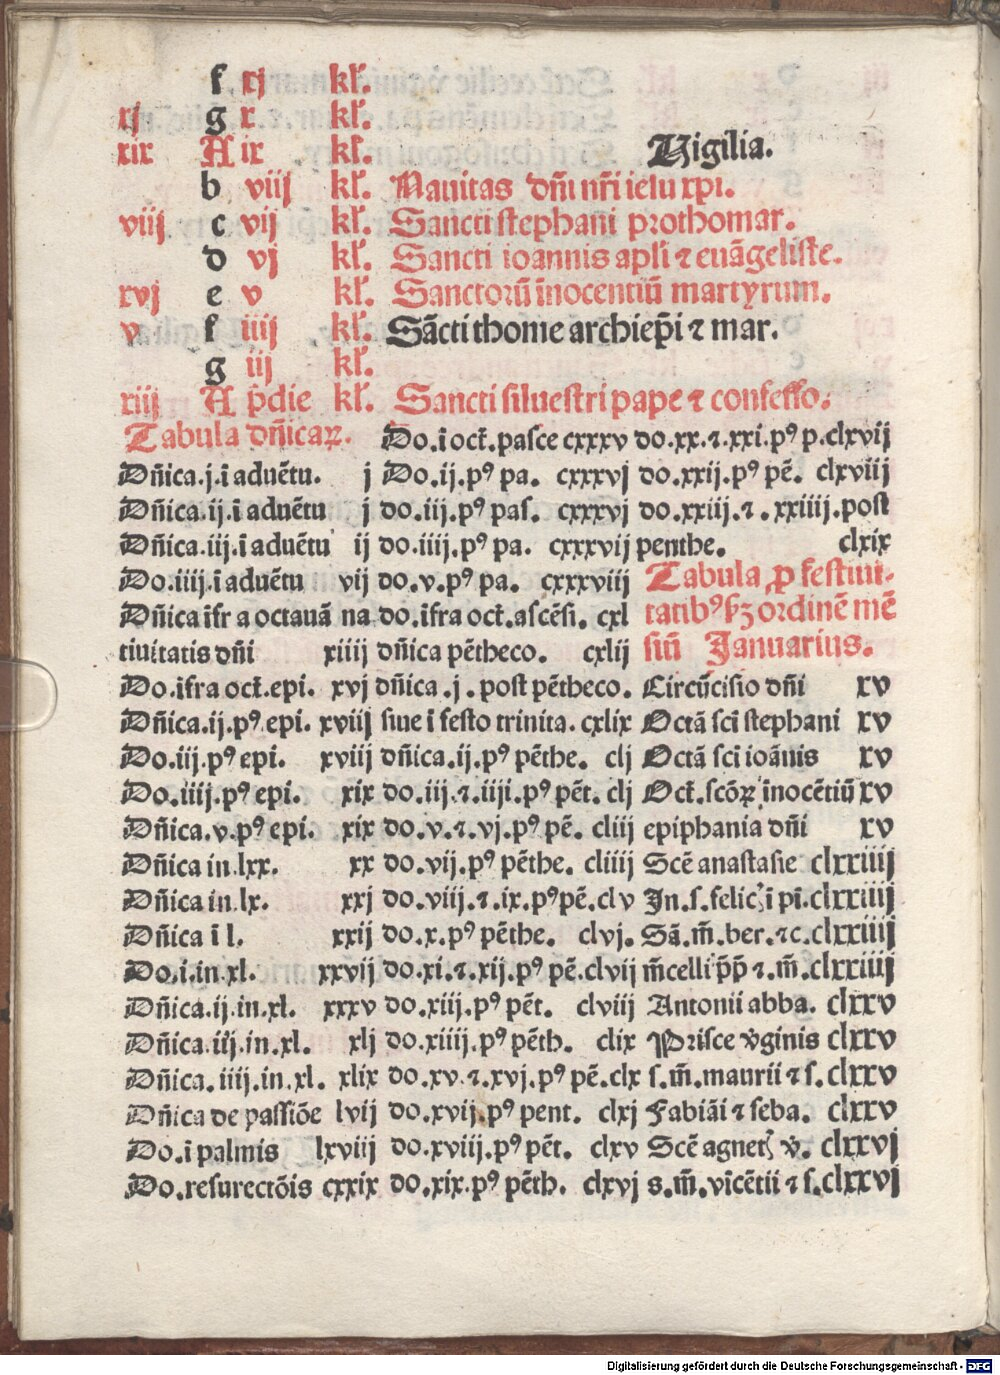 f xj kł.
xj g x kł.
xix A ix kł. Vigilia.
b viij kł. Nauitas dñi nr̃i iesu xpi.
viij c vij kł. Sancti stephani prothomar.
d vj kł. Sancti ioannis apl̃i ⁊ euãgeliste.
xvj e v kł. Sanctorũ ĩnocentiũ martyrum.
v f iiij kł. Sãcti thome archiep̃i ⁊ mar.
g iij kł.
xiij A p̃die kł. Sancti siluestri pape ⁊ confesso.
Tabula dñicaꝝ.
Dñica.j.ĩ aduẽtu. j
Dñica.ij.ĩ aduẽtu j
Dñica.iij.ĩ aduẽtu ij
Do.iiij.ĩ aduẽtu vij
Dñica ĩfra octauã na
tiuitatis dñi xiiij
Do.ĩfra oct̃.epi. xvj
Dñica.ij.pꝰ epi. xviij
Do.iij.pꝰ epi. xviij
Do.iiij.pꝰ epi. xix
Dñica.v.pꝰ epi. xix
Dñica in.lxx. xx
Dñica in.lx. xxj
Dñica ĩ l. xxij
Do.i.in.xl. xxvij
Dñica.ij.in.xl. xxxv
Dñica.iij.in.xl. xlj
Dñica.iiij.in.xl. xlix
Dñica de passiõe lvij
Do.ĩ palmis lxviij
Do.resurectõis cxxix
Do.ĩ oct̃.pasce cxxxv
Do.ij.pꝰ pa. cxxxvj
do.iij.pꝰ pas. cxxxvj
do.iiij.pꝰ pa. cxxxvij
do.v.pꝰ pa. cxxxviij
do.ĩfra oct̃.ascẽsi. cxl
dñica pẽtheco. cxlij
dñica.j.post pẽtheco.
siue ĩ festo trinita. cxlix
dñica.ij.pꝰ pẽthe. clj
do.iij.⁊.iiji.pꝰ pẽt. clj
do.v.⁊.vj.pꝰ pẽ. cliij
do.vij.pꝰ pẽthe. cliiij
do.viij.⁊.ix.pꝰ pẽ.clv
do.x.pꝰ pẽthe. clvj.
do.xi.⁊.xij.pꝰ pẽ.clvij
do.xiij.pꝰ pẽt. clviij
do.xiiij.pꝰ pẽth. clix
do.xv.⁊.xvj.pꝰ pẽ.clx
do.xvij.pꝰ pent. clxj
do.xviij.pꝰ pẽt. clxv
do.xix.pꝰ pẽth. clxvj
do.xx.⁊.xxi.pꝰ p.clxvij
do.xxij.pꝰ pẽ. clxviij
do.xxiij.⁊.xxiiij.post
penthe. clxix
Tabula ꝓ festiui-
tatibꝰ ẜꝫ ordinẽ mẽ
siũ Januarius.
Circũcisio dñi xv
Octã sci stephani xv
Octã sci ioãnis xv
Oct̃.scõꝝ ĩnocẽtiũ xv
epiphania dñi xv
Scẽ anastasie clxxiiij
In.s.felic ĩ pi.clxxiiij
Sã.m̃.ber.⁊c.clxxiiij
m̃celli p̃p̃ ⁊.m̃.clxxiiij
Antonii abba. clxxv
Prisce v̾ginis clxxv
s.m̃.maurii ⁊ s.clxxv
Fabiãi ⁊ seba. clxxv
Scẽ agnet v̾. clxxvj
s.m̃.vĩcẽtii ⁊ s.clxxvj
Digitalisierung gefördert durch die Deutsche Forschungsgemeinschaft - DFG